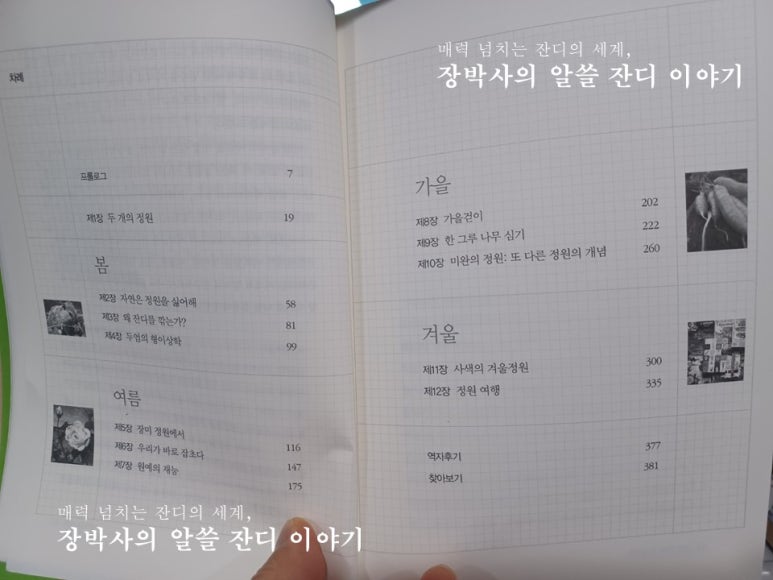 차례
프롤로그 7
제1장 두 개의 정원 19
봄
제2장 자연은 정원을 싫어해 58
제3장 왜 잔디를 깎는가? 81
제4장 두엄의 형이상학 99
여름
제5장 장미 정원에서 116
제6장 우리가 바로 잡초다 147
제7장 원예의 재능 175
매력 넘치는 잔디의 세계,
장박사의 알쓸 잔디 이야기
매력 넘치는 잔디의 세계,
장박사의 알쓸 잔디 이야기
가을
제8장 가을걷이 202
제9장 한 그루 나무 심기 222
제10장 미완의 정원: 또 다른 정원의 개념 260
겨울
제11장 사색의 겨울정원 300
제12장 정원 여행 335
역자후기 377
찾아보기 381